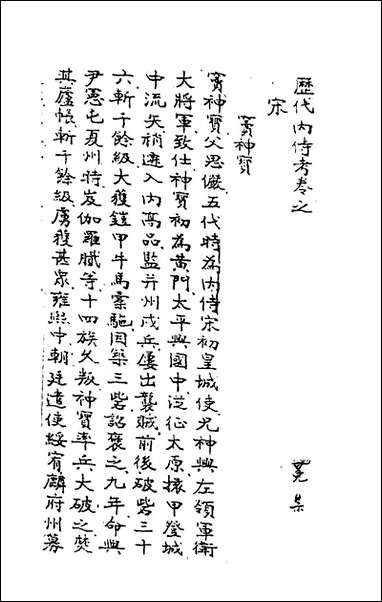 歷代內侍考卷之
宋　冕集
竇神寶
竇神寶父思儼五代時為內侍宋初皇城使兄神興左領軍衛
大將軍致仕神寶初為黃門太平興國中從征太原擐甲登城
中流矢稍遷入內高品監并州戍兵屢出襲賊前後破砦三十
六斬千餘級大獲鎧甲牛馬橐駞因築三砦詔褒之九年命與
尹憲屯夏州特岌伽羅膩等十四族久叛神寶率兵大破之焚
其廬帳斬千餘級虜獲甚眾雍熙中朝廷遣使綏宥麟府州募